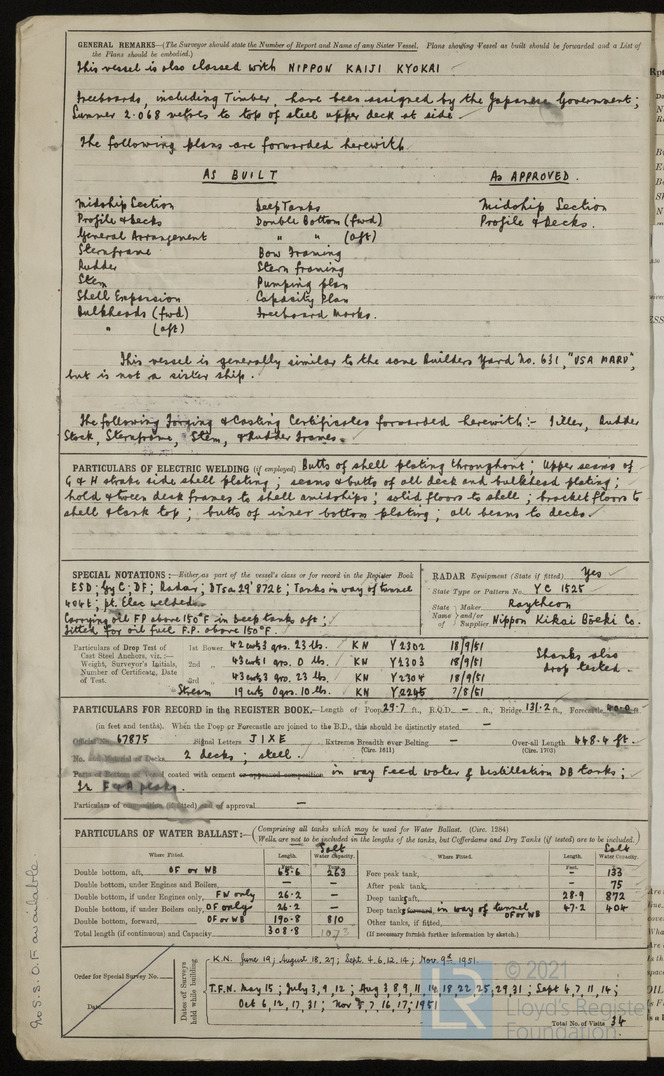 GENERAL REMARKS—(The Surveyor should state the Number of Report and Name of any Sister Vessel. Plans showing Vessel as built should be forwarded and a List of
the Plans should be embodied.)
This vessel is also classed with NIPPON KAIJI KYOKAI
Freeboards, including Timber, have been assigned by the Japanese Government;
Summer 2.068 metres to top of steel upper deck at side.
The following plans are forwarded herewith
AS BUILT As APPROVED.
Midship Section Deep Tanks Midship Section
Profile & Decks Double Bottom (fwd) Profile & Decks.
General Arrangement " " (aft)
Sternframe Bow Framing
Rudder Stern framing
Stem Pumping plan
Shell Expansion Capacity Plan
Bulkheads (fwd) Freeboard Marks.
" (aft)
This vessel is generally similar to the same Builders Yard No. 631, "USA MARU",
but is not a sister ship.
The following Forging & Casting Certificates forwarded herewith:- Tiller, Rudder
Stock, Sternframe, Stem, & Rudder Frames.
PARTICULARS OF ELECTRIC WELDING (if employed) Butts of shell plating throughout; Upper seams of
G & H strake side shell plating; seams & butts of all deck and bulkhead plating;
hold & tween deck frames to shell amidships; solid floors to shell; bracket floors to
shell & tank top; butts of inner bottom plating; all beams to decks.
SPECIAL NOTATIONS:—Either as part of the vessel's class or for record in the Register Book
ESD; Gy C; DF; Radar; DTsa 29' 872t; Tanks in way of tunnel
404t; pt. Elec welded.
Carrying oil FP above 150°F in Deep tanks aft;
fitted for oil fuel F.P. above 150°F.
RADAR Equipment (State if fitted) Yes
State Type or Pattern No. YC 1525
State Name of Maker and/or Supplier Raytheon
Nippon Kikai Boeki Co.
Particulars of Drop Test of Cast Steel Anchors, viz.:— Weight, Surveyor's Initials, Number of Certificate, Date of Test.
1st Bower 42 cwt 3 qrs. 23 lbs. KN Y2302 18/9/51
2nd " 43 cwt 1 qrs. 0 lbs. KN Y2303 18/9/51
3rd " 43 cwt 3 qrs. 23 lbs. KN Y2304 18/9/51
Stream 19 cwt 0 qrs. 10 lbs. KN Y2245 7/8/51
Shanks also
drop tested.
PARTICULARS FOR RECORD in the REGISTER BOOK.—Length of Poop 29.7 ft., R.Q.D. — ft., Bridge 131.2 ft., Forecastle 40.0 ft.
(in feet and tenths). When the Poop or Forecastle are joined to the B.D., this should be distinctly stated —
Official No. 67875 Signal Letters JIXE Extreme Breadth over Belting — (Circ. 1611) Over-all Length 448.4 ft. (Circ. 1703)
No. and Material of Decks 2 decks; steel.
Parts of Bottom of Vessel coated with cement or approved composition in way Feed water & Distillation DB tanks;
In F & A peaks.
Particulars of composition (if fitted) and of approval —
PARTICULARS OF WATER BALLAST:—(Comprising all tanks which may be used for Water Ballast. (Circ. 1284)
Wells are not to be included in the lengths of the tanks, but Cofferdams and Dry Tanks (if tested) are to be included.)
Where Fitted. Length. Salt Water Capacity. Where Fitted. Length. Salt Water Capacity.
Feet. Tons. Feet. Tons.
Double bottom, aft, OF or WB 65.6 263 Fore peak tank, — 133
Double bottom, under Engines and Boilers, — — After peak tank, — 75
Double bottom, if under Engines only, FW only 26.2 — Deep tank, aft, 28.9 872
Double bottom, if under Boilers only, OF only 26.2 — Deep tanks in way of tunnel OF or WB 47.2 404
Double bottom, forward, OF or WB 190.8 810 Other tanks, if fitted,
Total length (if continuous) and Capacity 308.8 1073 (If necessary furnish further information by sketch.)
Order for Special Survey No.
Date
Dates of Surveys held while building
K.N. June 19; August 18.27; Sept. 4.6.12.14; Nov. 9th 1951.
T.F.N. May 15; July 3,9,12; Aug 3,8,9,11,14,18,22,25,29,31; Sept 4,7,11,14;
Oct 6,12,17,31; Nov 5,7,16,17; 1951
Total No. of Visits 34
No S.S.O.F available.
LR © 2021
Lloyd's Register
Foundation